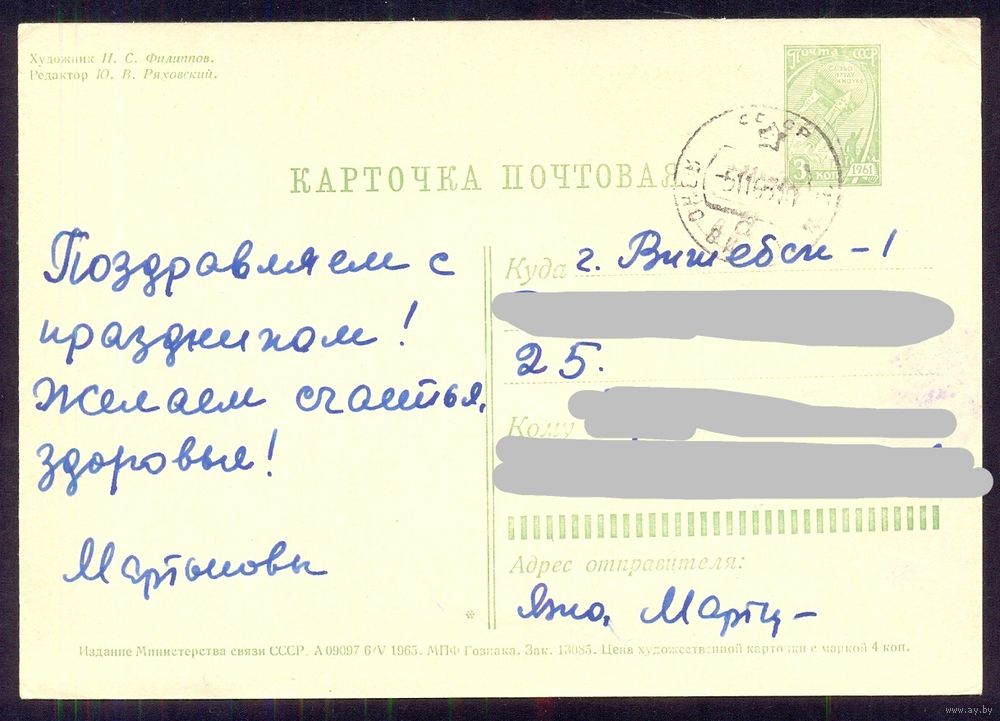 Художник И. С. Филиппов.
Редактор Ю. В. Ряховский.
Почта СССР
3 коп
1961
КАРТОЧКА ПОЧТОВАЯ
Поздравляем с
праздником!
Желаем счастья,
здоровья!
Мартыновы
Куда г. Витебск-1
25.
Кому
Адрес отправителя:
Марты-
*
Издание Министерства связи СССР. А 09097 6/V 1965. МПФ Гознака. Зак. 13085. Цена художественной карточки с маркой 4 коп.
www.ay.by